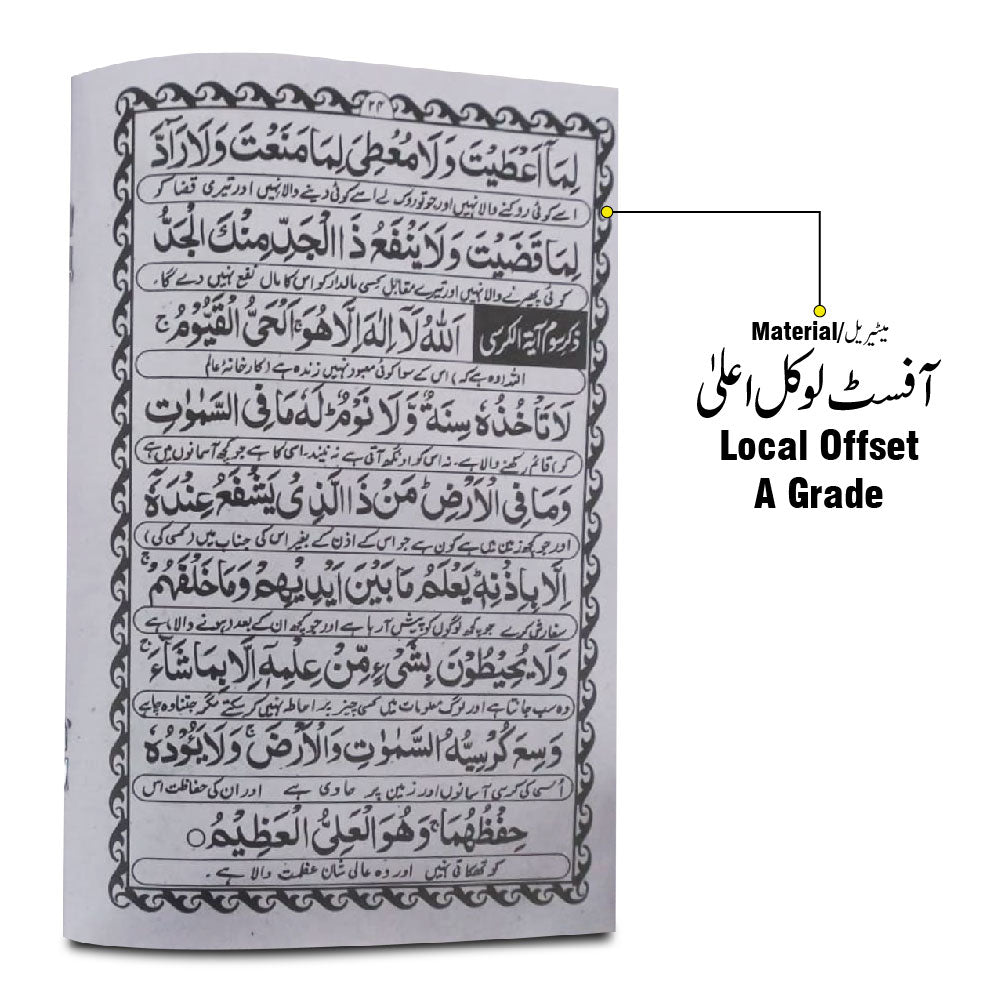 ۲۴
لِمَآ اَعْطَيْتَ وَلَا مُعْطِيَ لِمَا مَنَعْتَ وَلَا رَآدَّ
اسے کوئی روکنے والا نہیں اور جو تو روک لے اسے کوئی دینے والا نہیں اور تیری قضا کو
لِمَا قَضَيْتَ وَلَا يَنْفَعُ ذَا الْجَدِّ مِنْكَ الْجَدُّ
کوئی پھیرنے والا نہیں اور تیرے مقابل کسی مالدار کو اس کا مال نفع نہیں دے گا۔
ذکر سوم آیۃ الکرسی اَللّٰهُ لَآ اِلٰهَ اِلَّا هُوَ ۚ اَلْحَيُّ الْقَيُّوْمُ ۚ
اللہ (وہ ہے کہ) اس کے سوا کوئی معبود نہیں زندہ ہے (کارخانۂ عالم
لَا تَاْخُذُهٗ سِنَةٌ وَّلَا نَوْمٌ ؕ لَهٗ مَا فِي السَّمٰوٰتِ
کو) قائم رکھنے والا ہے۔ نہ اس کو اونگھ آتی ہے نہ نیند۔ اسی کا ہے جو کچھ آسمانوں میں ہے
وَمَا فِي الْاَرْضِ ؕ مَنْ ذَا الَّذِيْ يَشْفَعُ عِنْدَهٗٓ
اور جو کچھ زمین میں ہے کون ہے جو اس کے اذن کے بغیر اس کی جناب میں (کسی کی)
اِلَّا بِاِذْنِهٖ ؕ يَعْلَمُ مَا بَيْنَ اَيْدِيْهِمْ وَمَا خَلْفَهُمْ ۚ
سفارش کرے جو کچھ لوگوں کو پیش آ رہا ہے اور جو کچھ ان کے بعد ہونے والا ہے
وَلَا يُحِيْطُوْنَ بِشَيْءٍ مِّنْ عِلْمِهٖٓ اِلَّا بِمَا شَآءَ ۚ
وہ سب جانتا ہے اور لوگ معلومات میں کسی چیز پر احاطہ نہیں کر سکتے مگر جتنا وہ چاہے
وَسِعَ كُرْسِيُّهُ السَّمٰوٰتِ وَالْاَرْضَ ۚ وَلَا يَئُوْدُهٗ
اُسی کی کرسی آسمانوں اور زمین پر حاوی ہے اور ان کی حفاظت اس
حِفْظُهُمَا ۚ وَهُوَ الْعَلِيُّ الْعَظِيْمُ ○
کو تھکاتی نہیں اور وہ عالی شان عظمت والا ہے۔
Material/میٹیریل
آفسٹ لوکل اعلیٰ
Local Offset
A Grade